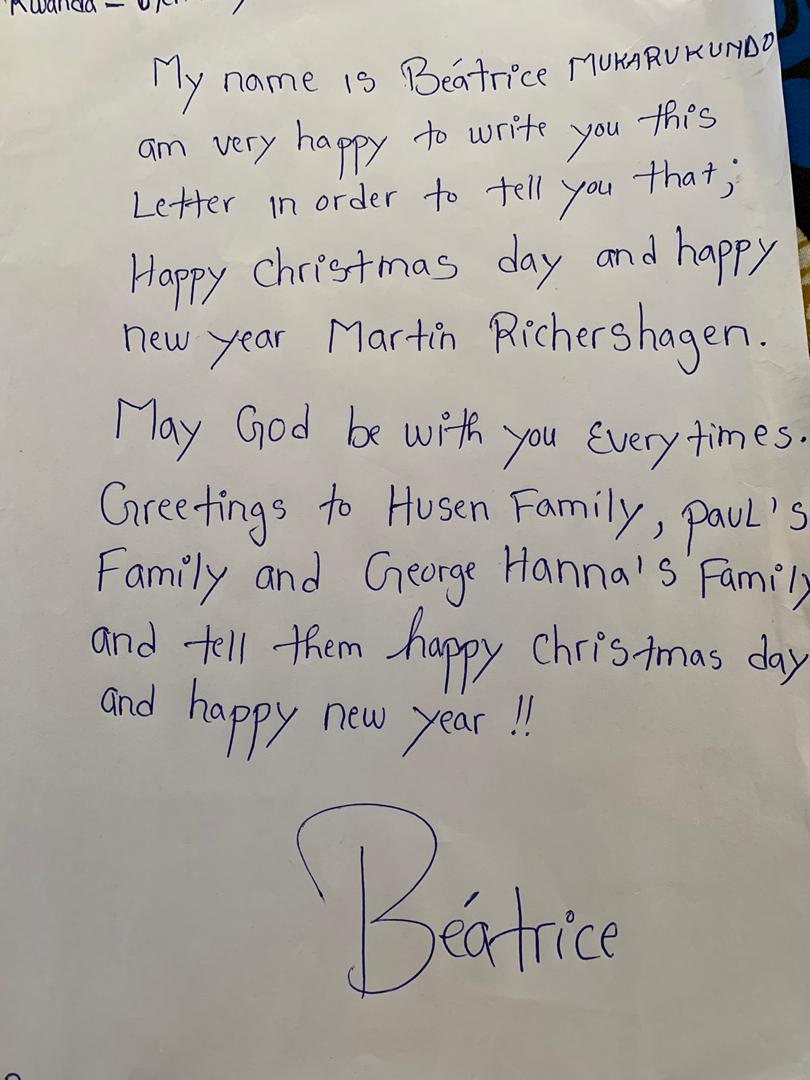 Rwanda –
My name is Béatrice MUKARUKUNDO
am very happy to write you this
Letter in order to tell you that;
Happy christmas day and happy
new year Martin Richershagen.
May God be with you Every times.
Greetings to Husen Family, PAUL's
Family and George Hanna's Family
and tell them happy christmas day
and happy new year !!
Béatrice